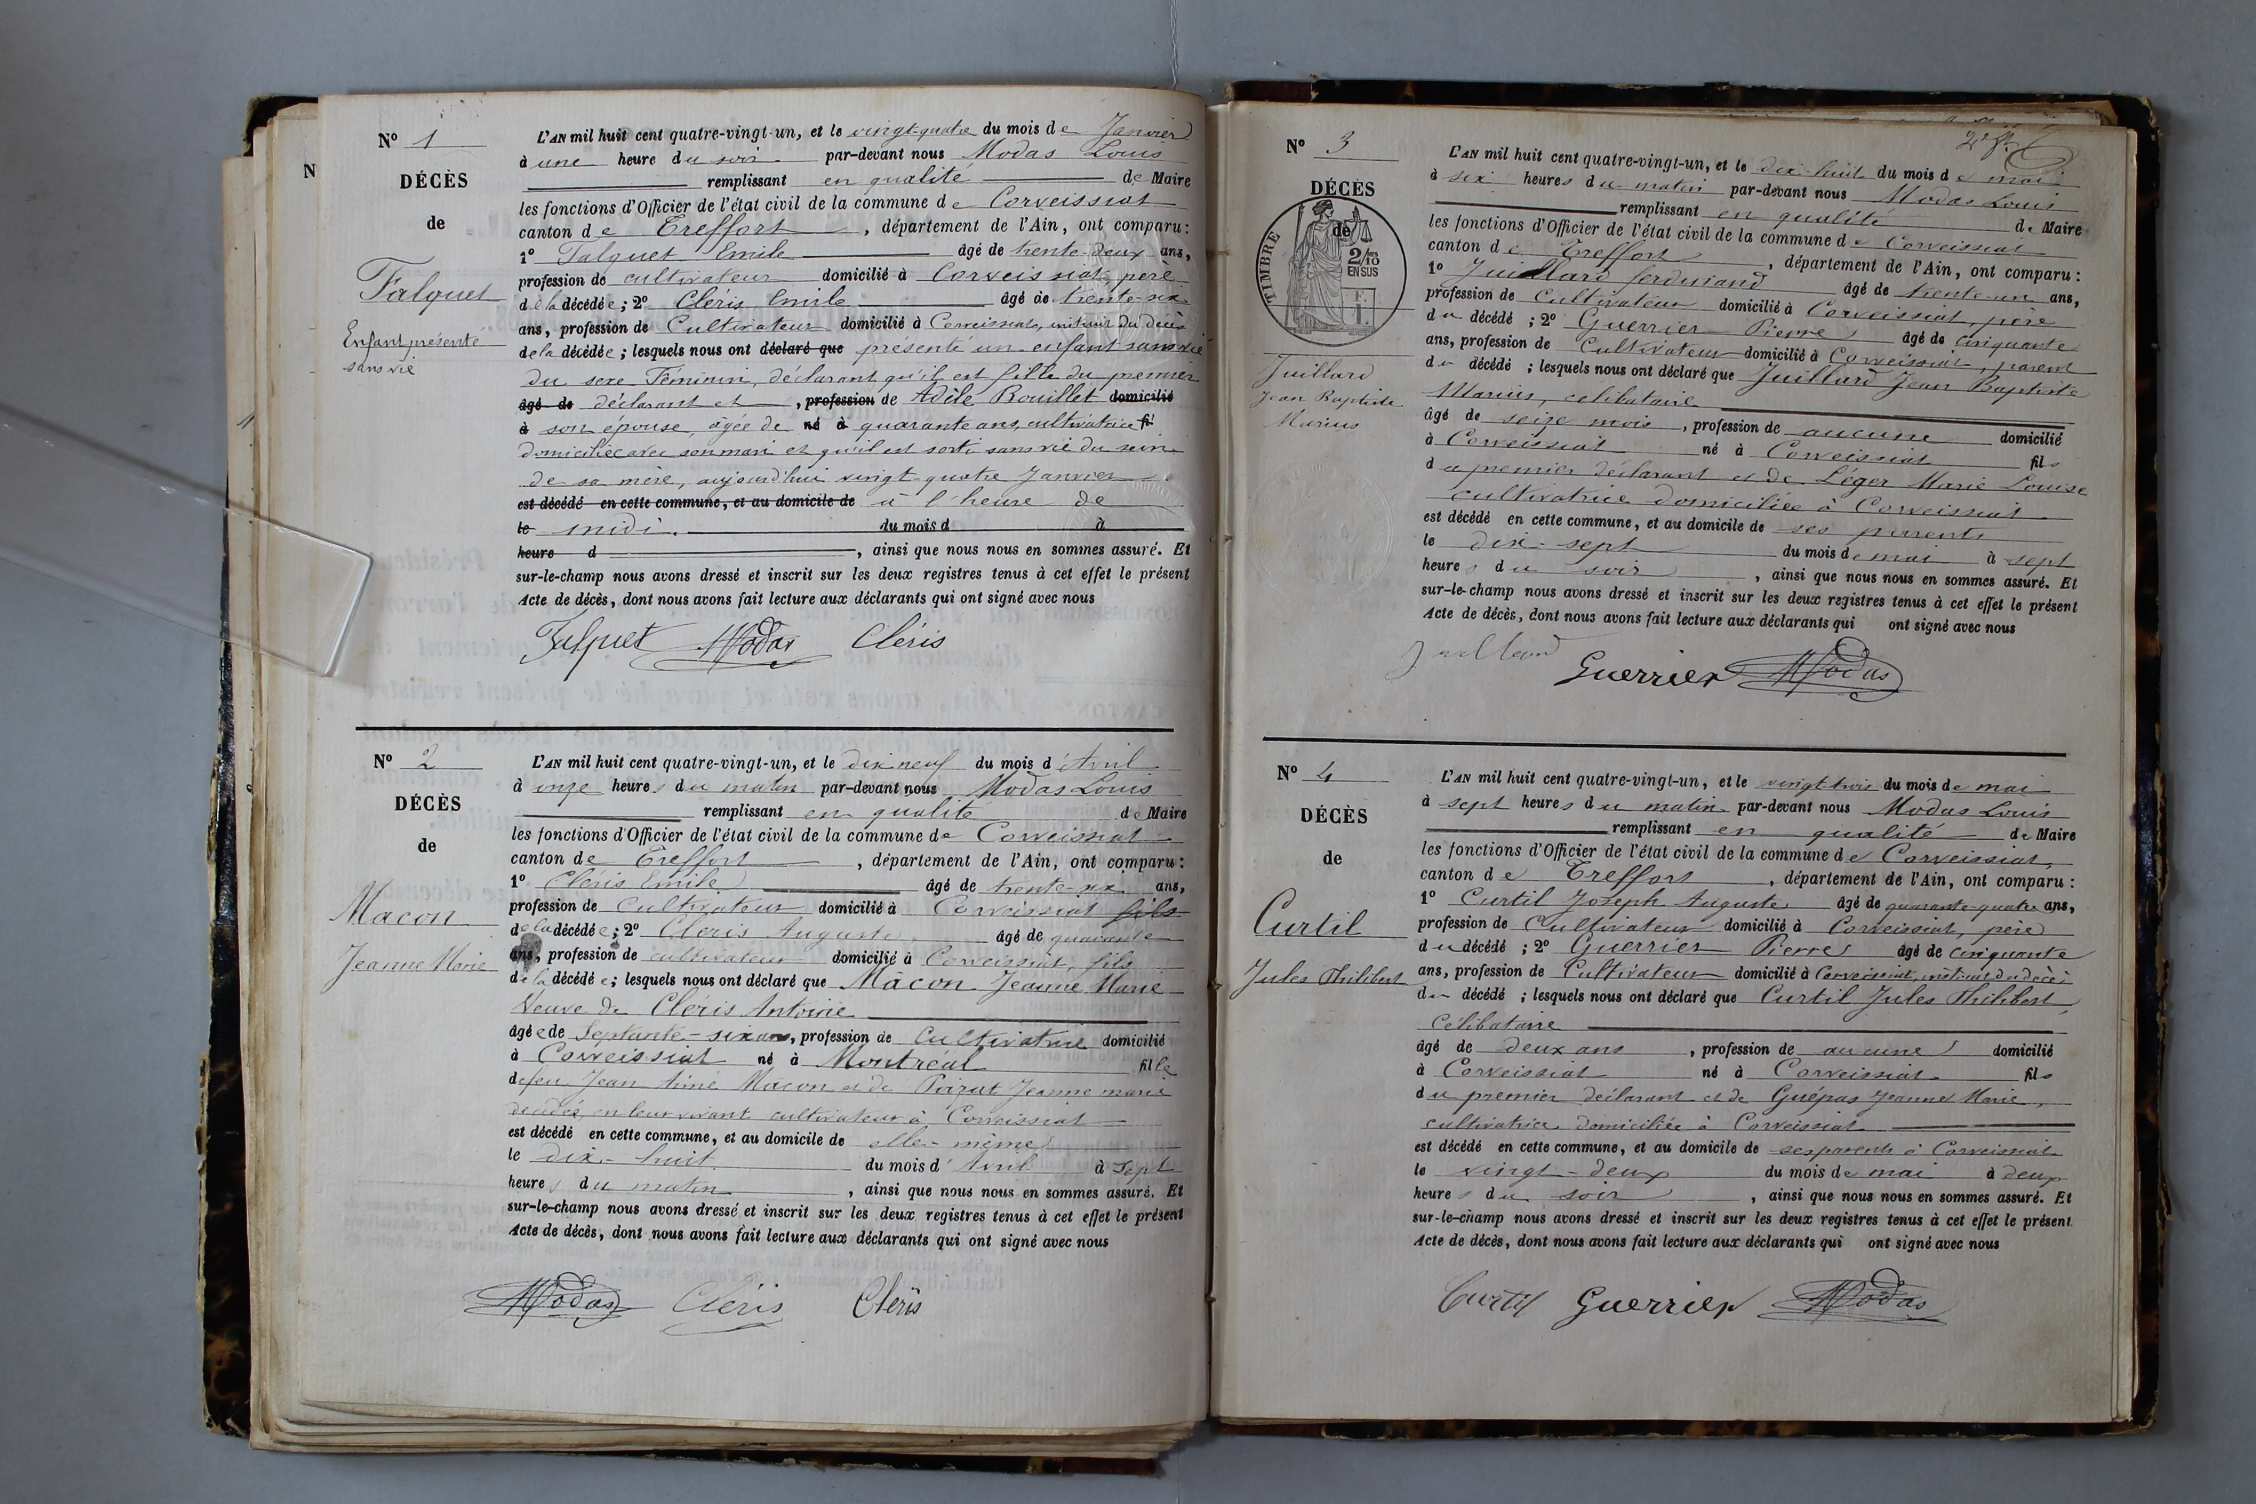 N° 1
DÉCÈS
de
Falquet
Enfant présenté
sans vie
L'AN mil huit cent quatre-vingt-un, et le vingt-quatre du mois de Janvier
à une heure du soir par-devant nous Modas Louis
remplissant en qualité de Maire
les fonctions d'Officier de l'état civil de la commune de Corveissiat
canton de Treffort, département de l'Ain, ont comparu:
1° Falquet Emile âgé de trente-deux ans,
profession de cultivateur domicilié à Corveissiat, père
de la décédée; 2° Cléris Emile âgé de trente-six
ans, profession de Cultivateur domicilié à Corveissiat, instruit du décès
de la décédée; lesquels nous ont déclaré que présenté un enfant sans vie
du sexe Féminin, déclarant qu'il est fille du premier
âgé de déclarant et, profession de Adèle Bouillet domicilié
à son épouse, âgée de né à quarante ans, cultivatrice fi
domiciliée avec son mari et qu'il est sorti sans vie du sein
de sa mère, aujourd'hui vingt-quatre Janvier
est décédé en cette commune, et au domicile de à l'heure de
le midi. du mois d à
heure d, ainsi que nous nous en sommes assuré. Et
sur-le-champ nous avons dressé et inscrit sur les deux registres tenus à cet effet le présent
Acte de décès, dont nous avons fait lecture aux déclarants qui ont signé avec nous
Falquet Modas Cléris
N° 2
DÉCÈS
de
Macon
Jeanne Marie
L'AN mil huit cent quatre-vingt-un, et le dix neuf du mois d'Avril
à onze heures du matin par-devant nous Modas Louis
remplissant en qualité de Maire
les fonctions d'Officier de l'état civil de la commune de Corveissiat
canton de Treffort, département de l'Ain, ont comparu:
1° Cléris Emile âgé de trente-six ans,
profession de Cultivateur domicilié à Corveissiat fils
de la décédée; 2° Cleris Auguste âgé de quarante
ans, profession de cultivateur domicilié à Corveissiat, fils
de la décédée; lesquels nous ont déclaré que Mâcon Jeanne Marie
Veuve de Cléris Antoine
âgée de Septante-six ans, profession de Cultivatrice domicilié
à Corveissiat né à Montréal fille
de feu Jean Aimé Macon et de Poizat Jeanne marie
décédés, en leur vivant cultivateur à Corveissiat
est décédé en cette commune, et au domicile de elle-même
le dix-huit du mois d'Avril à sept
heures du matin, ainsi que nous nous en sommes assuré. Et
sur-le-champ nous avons dressé et inscrit sur les deux registres tenus à cet effet le présent
Acte de décès, dont nous avons fait lecture aux déclarants qui ont signé avec nous
Modas Cléris Cleris
N° 3
DÉCÈS
de
TIMBRE
2/10
EN SUS
Juillard
Jean Baptiste
Marius
L'AN mil huit cent quatre-vingt-un, et le dix-huit du mois de mai
à six heures du matin par-devant nous Modas Louis
remplissant en qualité de Maire
les fonctions d'Officier de l'état civil de la commune de Corveissiat
canton de Treffort, département de l'Ain, ont comparu:
1° Juillard ferdinand âgé de trente-un ans,
profession de Cultivateur domicilié à Corveissiat, père
du décédé; 2° Guerrier Pierre âgé de cinquante
ans, profession de Cultivateur domicilié à Corveissiat, parent
du décédé; lesquels nous ont déclaré que Juillard Jean Baptiste
Marius, celibataire
âgé de seize mois, profession de aucune domicilié
à Corveissiat né à Corveissiat fils
du premier déclarant et de Léger Marie Louise
cultivatrice domiciliée à Corveissiat
est décédé en cette commune, et au domicile de ses parents
le dix-sept du mois de mai à sept
heures du soir, ainsi que nous nous en sommes assuré. Et
sur-le-champ nous avons dressé et inscrit sur les deux registres tenus à cet effet le présent
Acte de décès, dont nous avons fait lecture aux déclarants qui ont signé avec nous
Juillard Guerrier Modas
N° 4
DÉCÈS
de
Curtil
Jules Philibert
L'AN mil huit cent quatre-vingt-un, et le vingt-trois du mois de mai
à sept heures du matin par-devant nous Modas Louis
remplissant en qualité de Maire
les fonctions d'Officier de l'état civil de la commune de Corveissiat,
canton de Treffort, département de l'Ain, ont comparu:
1° Curtil Joseph Auguste âgé de quarante-quatre ans,
profession de Cultivateur domicilié à Corveissiat, père
du décédé; 2° Guerrier Pierre âgé de cinquante
ans, profession de Cultivateur domicilié à Corveissiat, instruit du décès
du décédé; lesquels nous ont déclaré que Curtil Jules Philibert,
Célibataire
âgé de deux ans, profession de aucune domicilié
à Corveissiat né à Corveissiat fils
du premier déclarant et de Guépas Jeanne Marie,
cultivatrice domiciliée à Corveissiat
est décédé en cette commune, et au domicile de ses parents à Corveissiat
le vingt-deux du mois de mai à deux
heures du soir, ainsi que nous nous en sommes assuré. Et
sur-le-champ nous avons dressé et inscrit sur les deux registres tenus à cet effet le présent
Acte de décès, dont nous avons fait lecture aux déclarants qui ont signé avec nous
Curtil Guerrier Modas